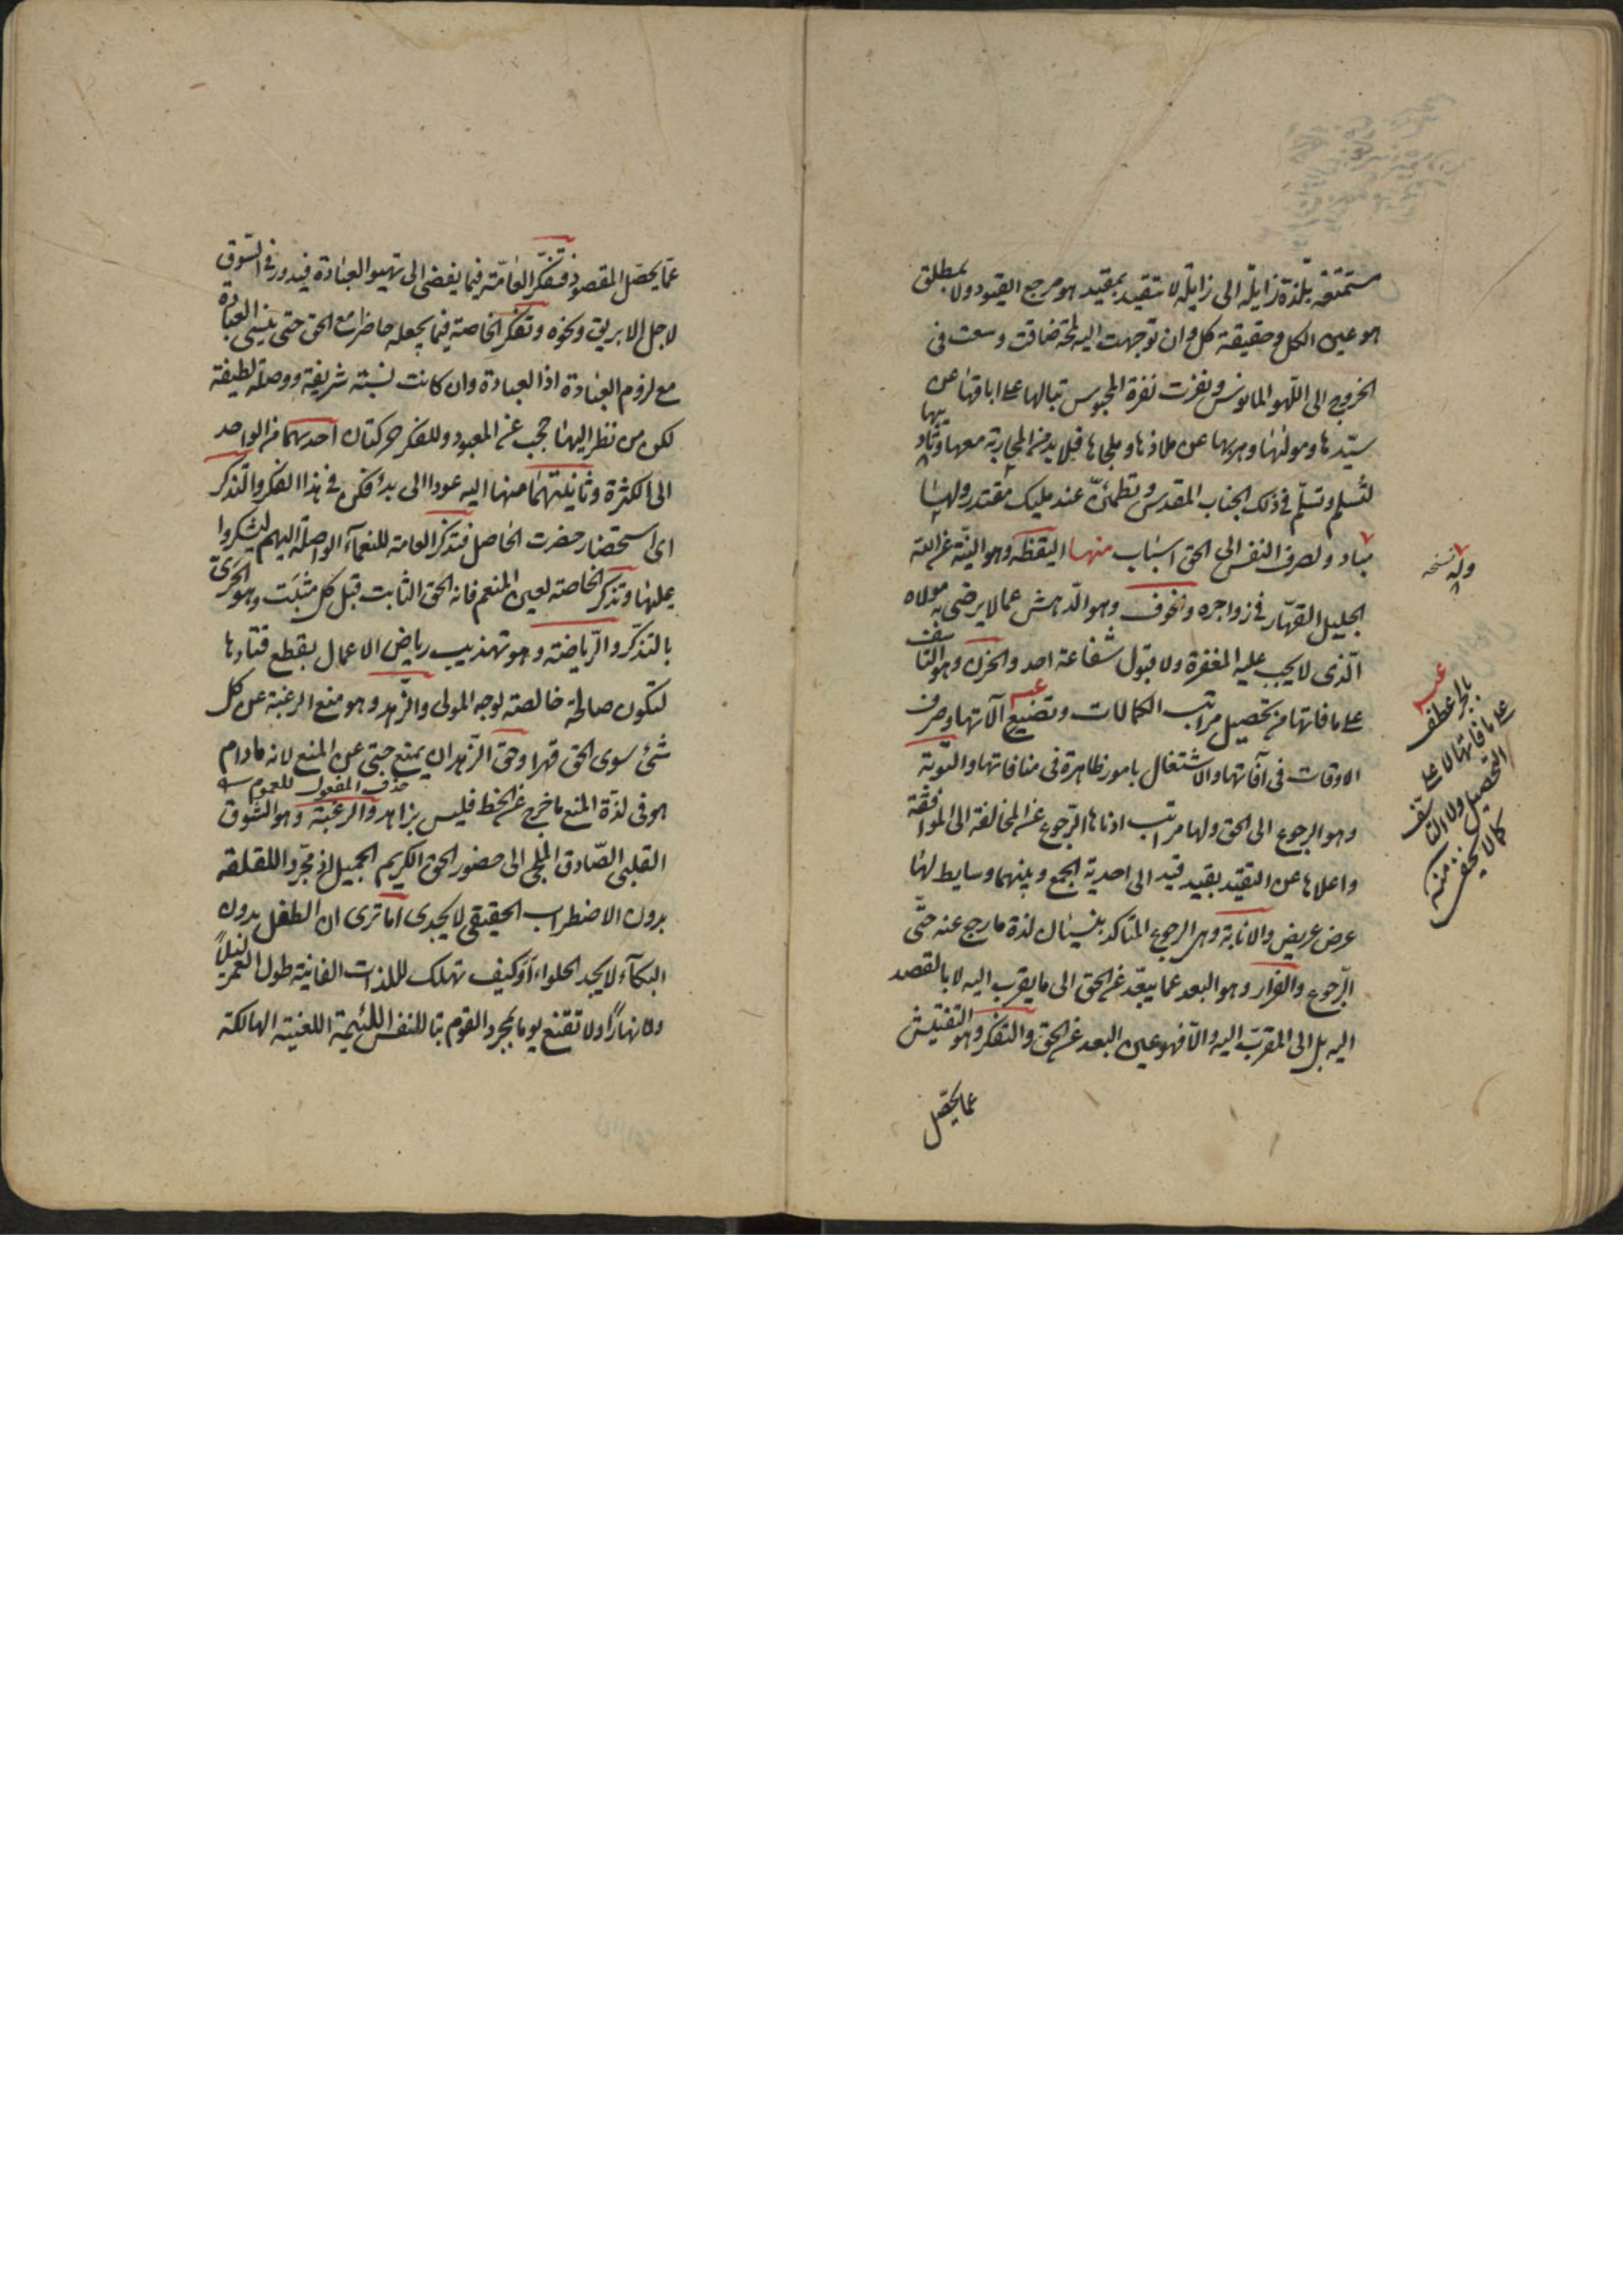 مستمتعة بلذة زايلة الى زايلة لا تتقيد بمقيد هو مرجع القيود ولا بمطلق
هو عين الكل وحقيقة كل وان توجهت اليه لمحة ضاقت وسعت فى
الخروج الى اللهو المانوس ونفرت نفرة المحبوس تبا لها على اباقها عن
سيدها ومولها وهربها عن ملاذها وملجاها فلا بد من المحاربة معها وتاديبها
لتسلم وتسلم فى ذلك الجناب المقدس وتطمئن عند مليك مقتدر ولها
مباد ولصرف النفس الى الحق اسباب منها اليقظة وهو
الجليل القهار فى زواجره والخوف وهو الدهش عما لا يرضى به مولاه
الذى لا يجب عليه المغفرة ولا قبول شفاعة احد والحزن وهو التاسف
على ما فاتها من تحصيل مراتب الكمالات وتضييع آلاتها وصرف
الاوقات فى آفاتها والاشتغال بامور ظاهرة فى منافاتها والتوبة
وهو الرجوع الى الحق ولها مراتب ادناها الرجوع عن المخالفة الى الموافقة
واعلاها عن التقيد بقيد قيد الى احدية الجمع وبينهما وسايط لها
عرض عريض والانابة وهى الرجوع المتاكد بنسيان لذة ما رجع عنه حتى
الرجوع والفرار وهو البعد عما يبعد عن الحق الى ما يقرب اليه لا بالقصد
اليه بل الى المقرب اليه والا فهو عين البعد عن الحق والتفكر وهو التفتيش
عما يحصل
وله نسخه
بالجر عطف
على ما فاتها لا على
التحصيل ولا التاسف
كما لا يخفى منه
عما يحصل المقصود فتفكر العامة فيما يفضى الى تهيو العبادة فيدور فى السوق
لاجل الابريق ونحوه وتفكر الخاصة فيما يجعله حاضرا مع الحق حتى ينسى العبادة
مع لزوم العبادة اذ العبادة وان كانت نسبة شريفة ووصلة لطيفة
لكن من نظر اليها حجب عن المعبود وللفكر حركتان احدهما من الواحد
الى الكثرة وثانيتهما منها اليه عودا الى بدء فكن فى هذا الفكر والتذكر
اى استحضار حضرت الحاصل فتذكر العامة للنعمآء الواصلة اليهم ليشكروا
عليها وتذكر الخاصة لعين المنعم فانه الحق الثابت قبل كل مثبت وهو الحرى
بالتذكر والرياضة وهو تهذيب رياض الاعمال بقطع قتادها
لتكون صالحة خالصة لوجه المولى والزهد وهو منع الرغبة عن كل
شئ سوى الحق قهرا وحق الزهد ان يمنع حتى عن المنع لانه ما دام
حذف المفعول للعموم
هو فى لذة المنع ما خرج عن الحظ فليس بزاهد والرغبة وهو الشوق
القلبى الصادق الملجى الى حضور الحق الكريم الجميل اذ مجرد اللقلقة
بدون الاضطراب الحقيقى لا يجدى اما ترى ان الطفل بدون
البكآء لا يجد الحلواء او كيف تهلك للذات الفانية طول العمر ليلاً
ولا نهاراً ولا تقنع يوما بمجرد القوم تبا للنفس اللئيمة اللعينة الهالكة